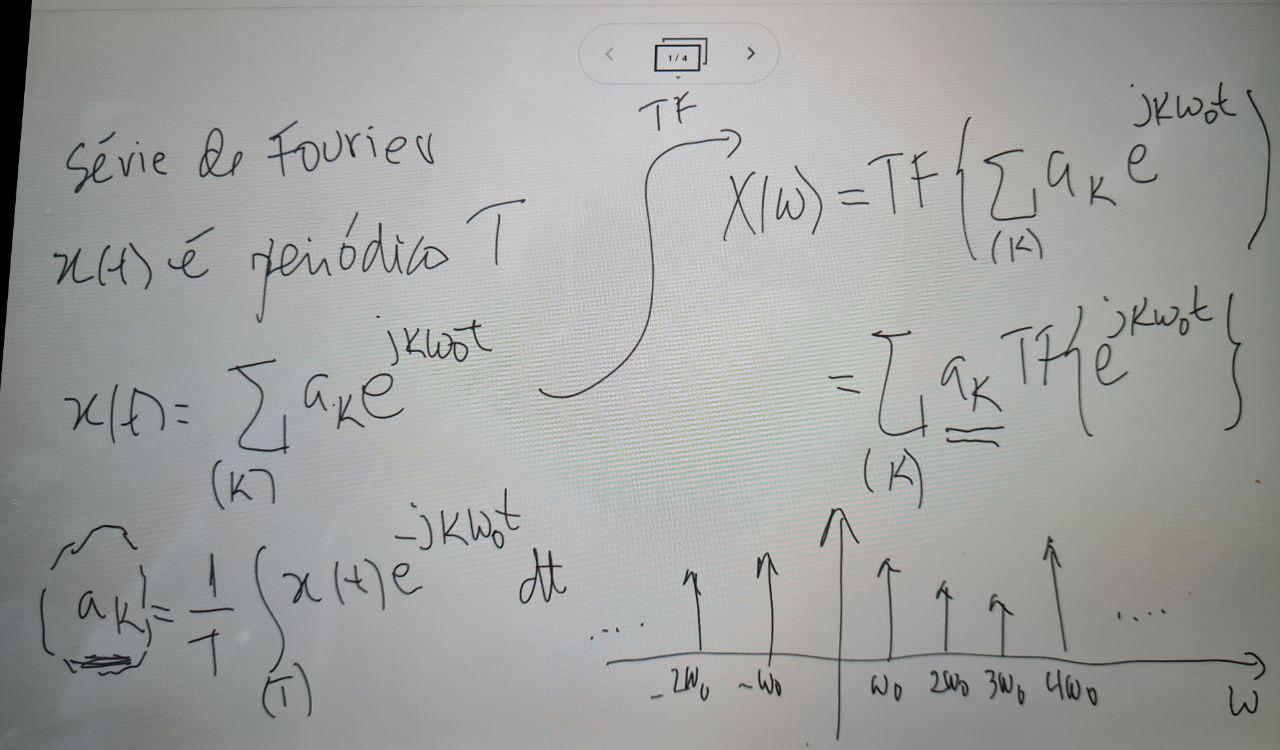 1/4
Série de Fourier
x(t) é periódico T
x(t) = ∑(k) a_k e^{jkω₀t}
a_k = 1/T ∫(T) x(t) e^{-jkω₀t} dt
TF
X(ω) = TF{∑(k) a_k e^{jkω₀t})
= ∑(k) a_k TF{e^{jkω₀t}}
.... ....
-2ω₀ -ω₀ ω₀ 2ω₀ 3ω₀ 4ω₀ ω